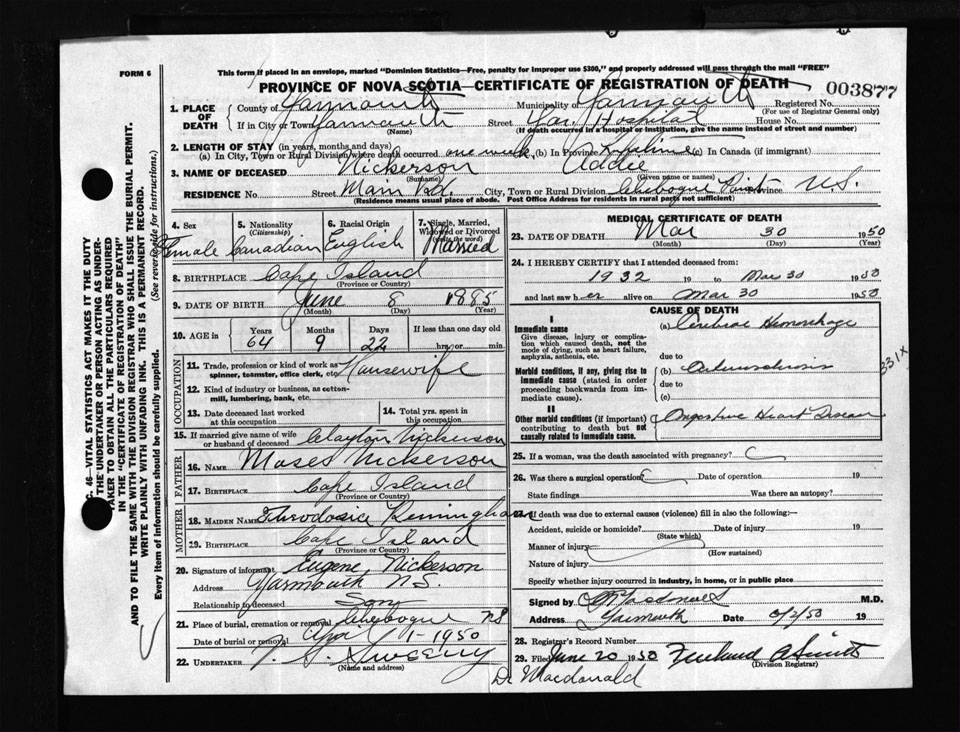 FORM 6
This form if placed in an envelope, marked "Dominion Statistics—Free, penalty for improper use $300," and properly addressed will pass through the mail "FREE"
PROVINCE OF NOVA SCOTIA—CERTIFICATE OF REGISTRATION OF DEATH
003877
1. PLACE OF DEATH County of Yarmouth Municipality of Yarmouth Registered No.
(For use of Registrar General only)
If in City or Town Yarmouth Street Yar. Hospital House No.
(Name) (If death occurred in a hospital or institution, give the name instead of street and number)
2. LENGTH OF STAY (in years, months and days)
(a) In City, Town or Rural Division where death occurred one week (b) In Province Lifetime (c) In Canada (if immigrant)
3. NAME OF DECEASED Nickerson Addie
(Surname) (Given name or names)
RESIDENCE No. Street Main Rd. City, Town or Rural Division Chebogue Point Province N.S.
(Residence means usual place of abode. Post Office Address for residents in rural parts not sufficient)
4. Sex Female
5. Nationality (Citizenship) Canadian
6. Racial Origin English
7. Single, Married, Widowed or Divorced (write the word) Married
8. BIRTHPLACE Cape Island
(Province or Country)
9. DATE OF BIRTH June 8 1885
(Month) (Day) (Year)
10. AGE in Years Months Days If less than one day old
64 9 22 hrs. or min.
OCCUPATION
11. Trade, profession or kind of work as spinner, teamster, office clerk, etc. Housewife
12. Kind of industry or business, as cotton-mill, lumbering, bank, etc.
13. Date deceased last worked at this occupation
14. Total yrs. spent in this occupation
15. If married give name of wife or husband of deceased Clayton Nickerson
FATHER
16. NAME Moses Nickerson
17. BIRTHPLACE Cape Island
(Province or Country)
MOTHER
18. MAIDEN NAME
19. BIRTHPLACE Cape Island
(Province or Country)
20. Signature of informant Eugene Nickerson
Address Yarmouth N.S.
Relationship to deceased Son
21. Place of burial, cremation or removal Chebogue NS
Date of burial or removal 1-1950
22. UNDERTAKER Sweeny
(Name and address)
MEDICAL CERTIFICATE OF DEATH
23. DATE OF DEATH Mar 30 1950
(Month) (Day) (Year)
24. I HEREBY CERTIFY that I attended deceased from:
1932 19 to Mar 30 1950
and last saw her alive on Mar 30 1950
CAUSE OF DEATH
I
Immediate cause
Give disease, injury or complication which caused death, not the mode of dying, such as heart failure, asphyxia, asthenia, etc.
(a) Cerebral Hemorrhage
due to
Morbid conditions, if any, giving rise to immediate cause (stated in order proceeding backwards from immediate cause).
(b) Arteriosclerosis
due to
(c)
331X
II
Other morbid conditions (if important) contributing to death but not causally related to immediate cause.
Congestive Heart Disease
25. If a woman, was the death associated with pregnancy?
26. Was there a surgical operation? Date of operation 19
State findings Was there an autopsy?
27. If death was due to external causes (violence) fill in also the following:—
Accident, suicide or homicide? Date of injury 19
(State which)
Manner of injury
(How sustained)
Nature of injury
Specify whether injury occurred in industry, in home, or in public place
Signed by Macdonald M.D.
Address Yarmouth Date 19
28. Registrar's Record Number
29. Filed June 20 1950
(Division Registrar)
Dr Macdonald
C. 46—VITAL STATISTICS ACT MAKES IT THE DUTY
THE UNDERTAKER OR PERSON ACTING AS UNDER-
TAKER TO OBTAIN ALL THE PARTICULARS REQUIRED
IN THE "CERTIFICATE OF REGISTRATION OF DEATH"
AND TO FILE THE SAME WITH THE DIVISION REGISTRAR WHO SHALL ISSUE THE BURIAL PERMIT.
WRITE PLAINLY WITH UNFADING INK. THIS IS A PERMANENT RECORD.
Every item of information should be carefully supplied. (See reverse side for instructions.)